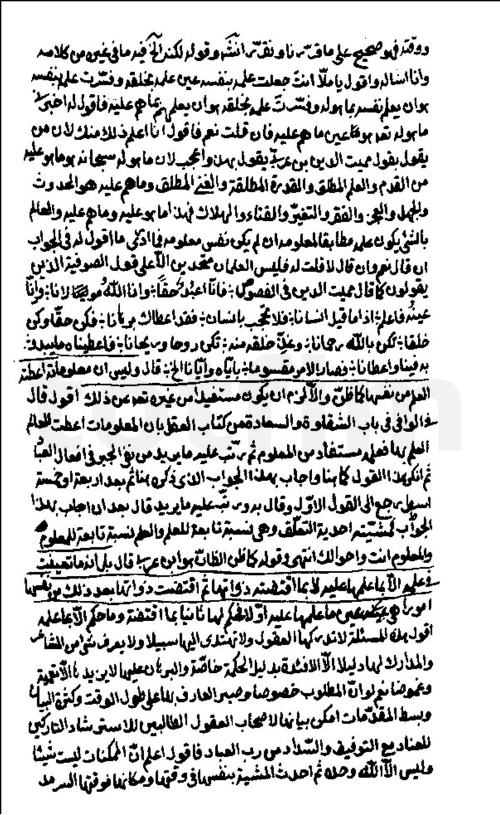 ووقته فهو صحيح على ما قررنا ونقرر انشاء الله وقوله لكنه الخ فيه ما في غيره من كلامه
وانا اسأله واقول يا ملا انت جعلت علمه بنفسه عين علمه بخلقه وفسرت علمه بنفسه
هو ان يعلم نفسه بما هو له وفسرت علمه بخلقه هو ان يعلمهم بما هم عليه فاقول له اخبرني
ما هو له تعالى هو عين ما هم عليه فان قلت نعم فاقول انا اعلم ذلك منك لان من
يقول بقول مميت الدين بن عربي يقول بهذا واعجب لان ما هو له سبحانه وما هو عليه
من القدم والعلم المطلق والقدرة المطلقة والغنى المطلق وما هم عليه هو الحدوث
والجهل والعجز والفقر والتغير والفناء والهلاك فهذا ما هو عليه وما هم عليه والعالم
بالشيء يكون علمه مطابقا لمعلومه ان لم يكن نفس معلومه فما ادري ما اقول له في الجواب
ان قال نعم وان قال لا قلت له فليس العلمان متحدين الا على قول الصوفية الذين
يقولون كما قال مميت الدين في الفصوص فانا اعبد حقا وانا الله مولينا وانا
عينه فاعلم اذا ما قيل انسانا فلا تحجب بانسان فقد اعطاك برهانا فكن حقا وكن
خلقا تكن بالله رحمانا وغذ خلقه منه تكن روحا وريحانا فاعطيناه ما يبدو
به فينا واعطانا فصار الامر مقسوما باياه وايانا الخ قال وليس ان معلوماته اعطته
العلم من نفسها كما ظن والا لزم ان يكون مستفيدا من غيره تعالى عن ذلك اقول قال
في الوافي في باب الشقاوة والسعادة من كتاب العقل بان المعلومات اعطت للعالم
العلم بها فعلمه مستفاد من المعلوم ثم رتب عليه ما يريد من نفي الجبر في افعال العباد
ثم انكر هذا القول كما هنا واجاب بهذا الجواب الذي ذكره هنا ثم بعد اربعة او خمسة
اسطر رجع الى القول الاول وقال به ورتب عليه ما يريد قال بعد ان اجاب بهذا
الجواب فمشيته احدية التعلق وهي نسبة تابعة للعلم والعلم نسبة تابعة للمعلوم
والمعلوم انت واحوالك انتهى وقوله كما ظن الظان هو ابن عربي قال بل انما تعينت
في علمه الا بما علمها عليه لا بما اقتضته ذواتها ثم اقتضت ذواتها بعد ذلك من نفسها
امورا هي عين ما علمها عليه اولا فحكم لها ثانيا بما اقتضته وما حكم الا بما علمه
اقول هذه المسئلة لا تدركها العقول ولا تهتدي اليها سبيلا ولا يعرف شيء من المشاعر
والمدارك لها دليلا الا الافئدة بدليل الحكمة خاصة والبرهان عليها لا يزيدها الا تعمية
وغموضا نعم لو ان المطلوب خصوصا وصبر العارف بها على طول الوقت وكثرة البيان
وبسط المقدمات امكن بيانها لاصحاب العقول الطالبين للاسترشاد التاركين
للعناد مع التوفيق والسداد من رب العباد فاقول اعلم ان الممكنات ليست شيئا
وليس الا الله وحده ثم احدث المشية بنفسها في وقتها ومكانها فوقتها السرمد